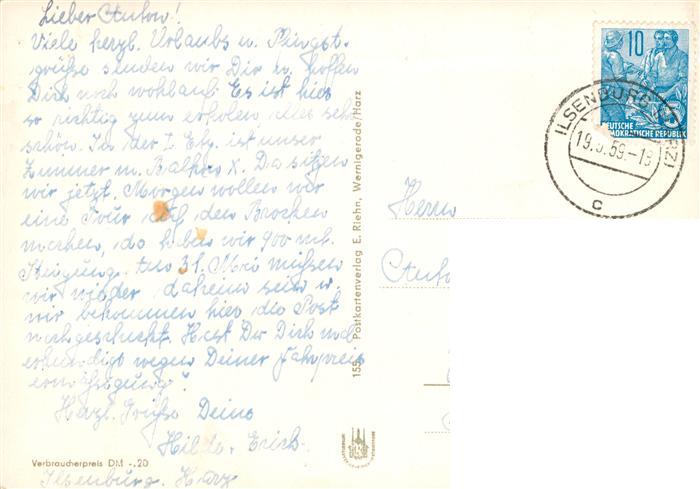 Lieber Anton!
Viele herzl. Urlaubs u. Pfingst-
grüße senden wir Dir u. hoffen
Dich noch wohlauf. Es ist hier
so richtig zum erholen, alles sehr
schön. In der I. Etg. ist unser
Zimmer m. Balkon X. Da sitzen
wir jetzt. Morgen wollen wir
eine Tour auf den Brocken
machen, da haben wir 900 mt.
Steigung. Am 31. Mai müssen
wir wieder daheim sein u.
wir bekommen hier die Post
nachgeschickt. Hast Du Dich mal
erkundigt wegen Deiner Fahrpreis
ermäßigung?
Herzl. Grüße Deine
Hilde u. Erich.
Ilsenburg. Harz
Verbraucherpreis DM -.20
155 Postkartenverlag E. Riehn, Wernigerode/Harz
10
DEUTSCHE
DEMOKRATISCHE REPUBLIK
ILSENBURG (HARZ)
19.5.59.-18
c
Herrn
Anton